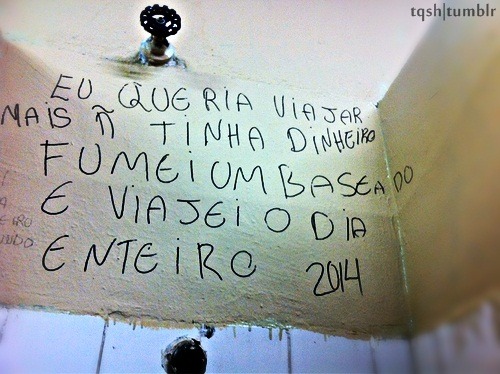 tqsh|tumblr
EU QUERIA VIAJAR
MAIS Ñ TINHA DINHEIRO
FUMEI UM BASEADO
E VIAJEI O DIA
ENTEIRO 2014